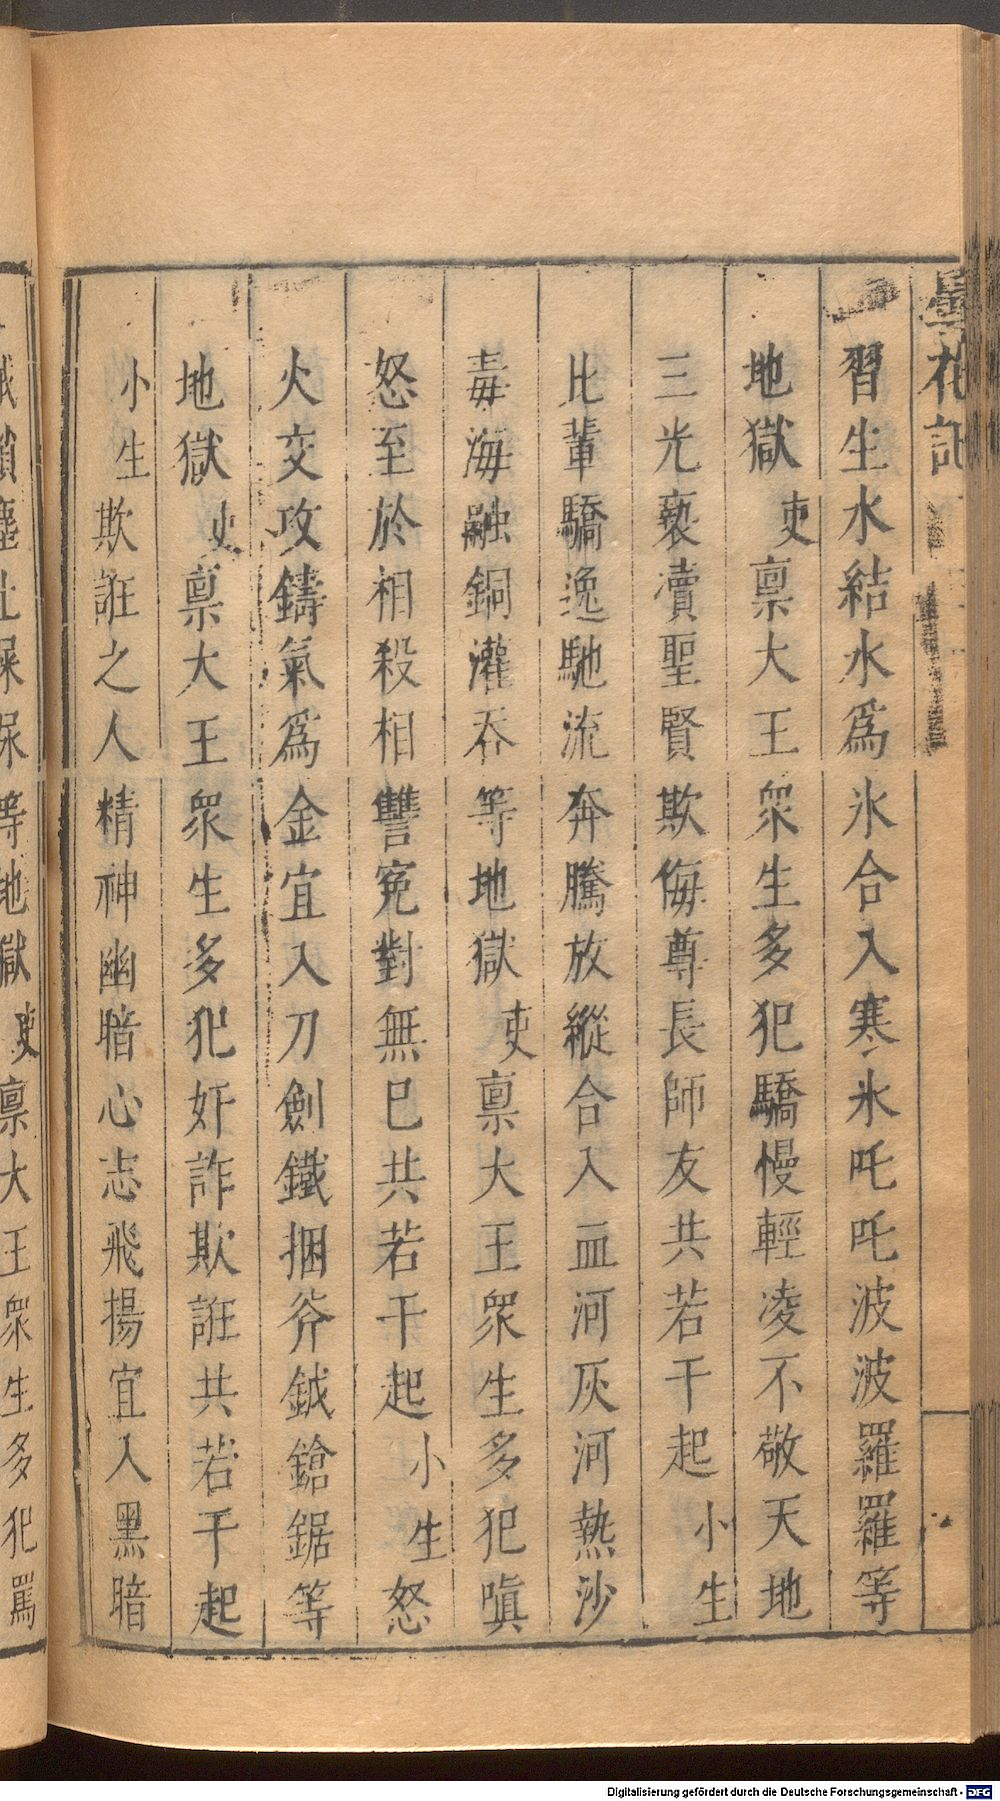 曇花記
習生水結水爲氷合入寒氷吒吒波波羅羅等
地獄吏禀大王衆生多犯驕慢輕凌不敬天地
三光䙝瀆聖賢欺侮尊長師友共若干起小生
比輩驕逸馳流奔騰放縱合入血河灰河熱沙
毒海融銅灌吞等地獄吏禀大王衆生多犯嗔
怒至於相殺相讐寃對無已共若干起小生怒
火交攻鑄氣爲金宜入刀劍鐵捆斧鉞鎗鋸等
地獄吏禀大王衆生多犯奸詐欺誑共若干起
小生欺誑之人精神幽暗心志飛揚宜入黑暗
等地獄吏禀大王衆生多犯罵
Digitalisierung gefördert durch die Deutsche Forschungsgemeinschaft - DFG